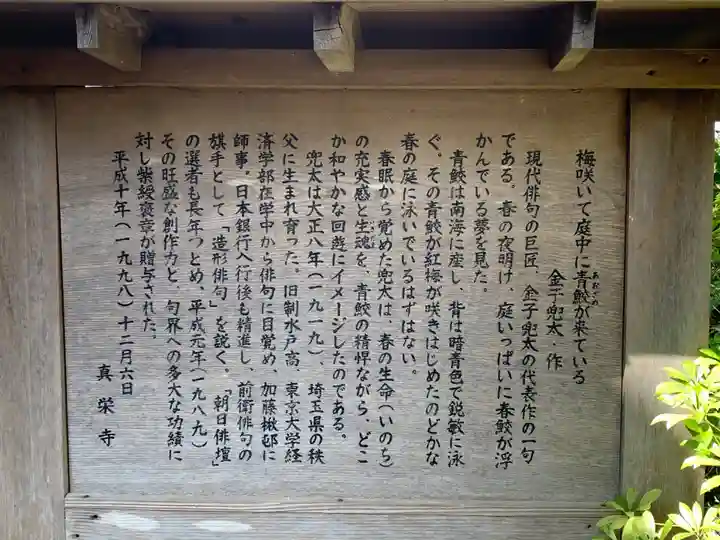 梅咲いて庭中に青鮫が来ている
あおざめ
金子兜太・作
現代俳句の巨匠、金子兜太の代表作の一句
である。春の夜明け、庭いっぱいに春鮫が浮
かんでいる夢を見た。
青鮫は南海に産し、背は暗青色で鋭敏に泳
ぐ。その青鮫が紅梅が咲きはじめたのどかな
春の庭に泳いでいるはずはない。
春眠から覚めた兜太は、春の生命(いのち)
の充実感と生魂を、青鮫の精悍ながら、どこ
か和やかな回遊にイメージしたのである。
兜太は大正八年(一九一九)、埼玉県の秩
父に生まれ育った。旧制水戸高、東京大学経
済学部在学中から俳句に目覚め、加藤楸邨に
師事。日本銀行へ行後も精進し、前衛俳句の
旗手として、「造形俳句」を説く。「朝日俳壇」
の選者も長年つとめ、平成元年(一九八九)
その旺盛な創作力と、句界への多大な功績に
対し紫綬褒章が贈与された。
平成十年(一九九八)十二月六日
真栄寺